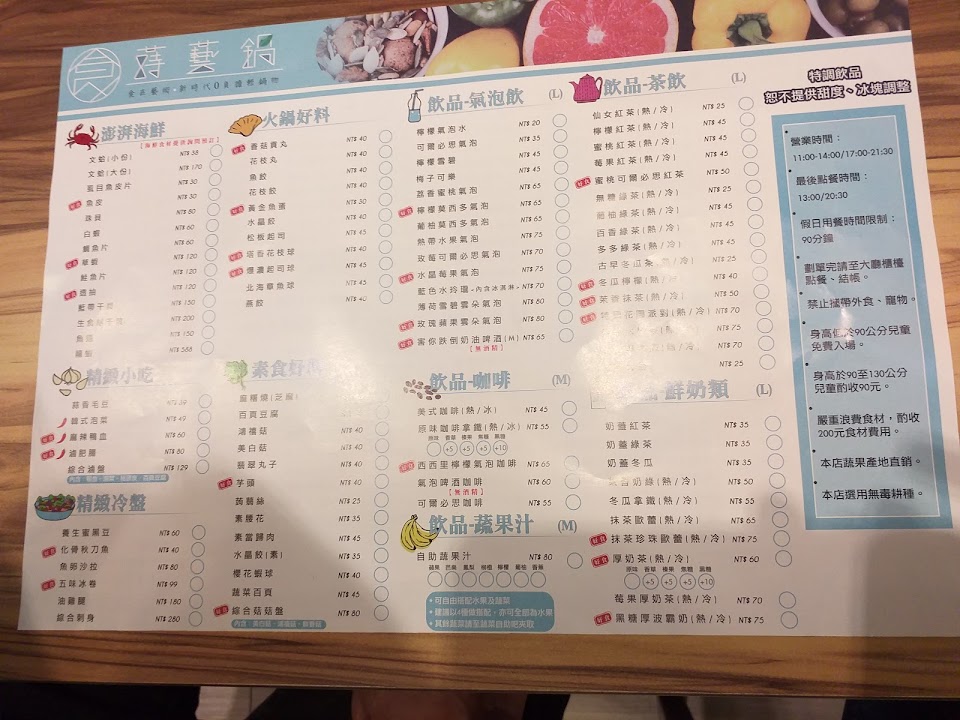 蒔藝鍋
澎湃海鮮
文蛤(小份) NT$ 38
文蛤(大份) NT$ 170
虱目魚皮片 NT$ 30
魚皮 NT$ 30
珠貝 NT$ 80
白蝦 NT$ 60
鯛魚片 NT$ 60
草蝦 NT$ 120
鮭魚片 NT$ 120
透抽 NT$ 120
NT$ 150
NT$ 200
NT$ 150
NT$ 588
精緻小吃
蒜香毛豆
韓式泡菜 NT$ 49
麻辣鴨血 NT$ 60
滷肥腸 NT$ 80
綜合滷盤 NT$ 129
精緻冷盤
養生蜜黑豆 NT$ 60
化骨秋刀魚 NT$ 40
魚卵沙拉 NT$ 80
五味冰卷 NT$ 99
油雞腿 NT$ 180
綜合刺身 NT$ 280
火鍋好料
香菇貢丸 NT$ 40
花枝丸 NT$ 40
魚餃 NT$ 40
花枝餃 NT$ 40
黃金魚蛋 NT$ 30
水晶餃 NT$ 40
松板起司 NT$ 45
塔香花枝球 NT$ 40
爆漿起司球 NT$ 45
北海章魚球 NT$ 45
燕餃 NT$ 40
素食好
麻糬燒(芝麻)
百頁豆腐
鴻禧菇 NT$ 40
美白菇 NT$ 40
翡翠丸子 NT$ 40
芋頭 NT$ 40
蒟蒻絲 NT$ 25
素腰花 NT$ 35
素當歸肉 NT$ 45
水晶餃(素) NT$ 35
櫻花蝦球 NT$ 40
蔬菜百頁 NT$ 45
綜合菇菇盤 NT$ 80
飲品-氣泡飲 (L)
檸檬氣泡水 NT$ 20
可爾必思氣泡 NT$ 35
檸檬雪碧 NT$ 35
梅子可樂 NT$ 45
荔香蜜桃氣泡 NT$ 65
檸檬莫西多氣泡 NT$ 65
葡柚莫西多氣泡 NT$ 65
熱帶水果氣泡 NT$ 75
玫莓可爾必思氣泡 NT$ 70
水晶莓果氣泡 NT$ 75
藍色水玲瓏-內含冰淇淋 NT$ 70
薄荷雪碧雲朵氣泡 NT$ 80
玫瑰蘋果雲朵氣泡 NT$ 80
害你跌倒奶油啤酒(M) NT$ 65
【無酒精】
飲品-咖啡 (M)
美式咖啡(熱/冰) NT$ 45
原味咖啡拿鐵(熱/冰) NT$ 55
原味 香草 榛果 焦糖 黑糖
+5 +5 +5 +10
西西里檸檬氣泡咖啡 NT$ 65
氣泡啤酒咖啡 NT$ 60
【無酒精】
可爾必思咖啡 NT$ 55
飲品-蔬果汁 (M)
自助蔬果汁 NT$ 80
蘋果 芭樂 鳳梨 柳橙 檸檬 葡柚 香蕉
•可自由搭配水果及蔬菜
•建議以4種做搭配，亦可全部為水果
•其餘蔬菜請至蔬菜自助吧夾取
飲品-茶飲 (L)
仙女紅茶(熱/冷) NT$ 25
檸檬紅茶(熱/冷) NT$ 45
蜜桃紅茶(熱/冷) NT$ 45
莓果紅茶(熱/冷) NT$ 45
蜜桃可爾必思紅茶 NT$ 50
無糖綠茶(熱/冷) NT$ 25
葡柚綠茶(熱/冷) NT$ 45
百香綠茶(熱/冷) NT$ 45
多多綠茶(熱/冷) NT$ 45
古早冬瓜茶 NT$ 25
冬瓜檸檬(熱/冷) NT$ 40
(熱/冷) NT$ 50
派對(熱/冷) NT$ 70
NT$ 75
NT$ 70
NT$ 25
鮮奶類 (L)
奶蓋紅茶 NT$ 35
奶蓋綠茶 NT$ 35
奶蓋冬瓜 NT$ 35
奶綠(熱/冷) NT$ 50
冬瓜拿鐵(熱/冷) NT$ 55
抹茶歐蕾(熱/冷) NT$ 65
抹茶珍珠歐蕾(熱/冷) NT$ 75
厚奶茶(熱/冷) NT$ 60
原味 香草 榛果 焦糖 黑糖
+5 +5 +5 +10
莓果厚奶茶(熱/冷) NT$ 70
黑糖厚波霸奶(熱/冷) NT$ 75
特調飲品
恕不提供甜度、冰塊調整
營業時間：
11:00-14:00/17:00-21:30
最後點餐時間：
13:00/20:30
假日用餐時間限制：
90分鐘
劃單完請至大廳櫃檯
點餐、結帳。
禁止攜帶外食、寵物。
身高低於90公分兒童
免費入場。
身高於90至130公分
兒童酌收90元。
嚴重浪費食材，酌收
200元食材費用。
本店蔬果產地直銷。
本店選用無毒耕種。